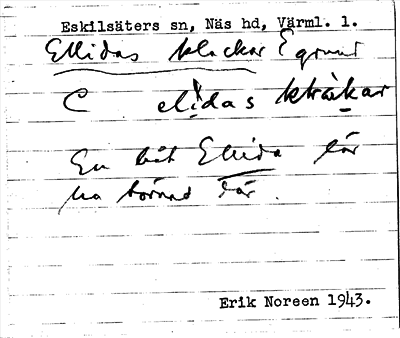 Eskilsäters sn, Näs hd, Värml. l.
Ellidas klackar E grund
C elidas kḷràkar
En båt Ellida lär
ha törnat där.
Erik Noreen 1943.